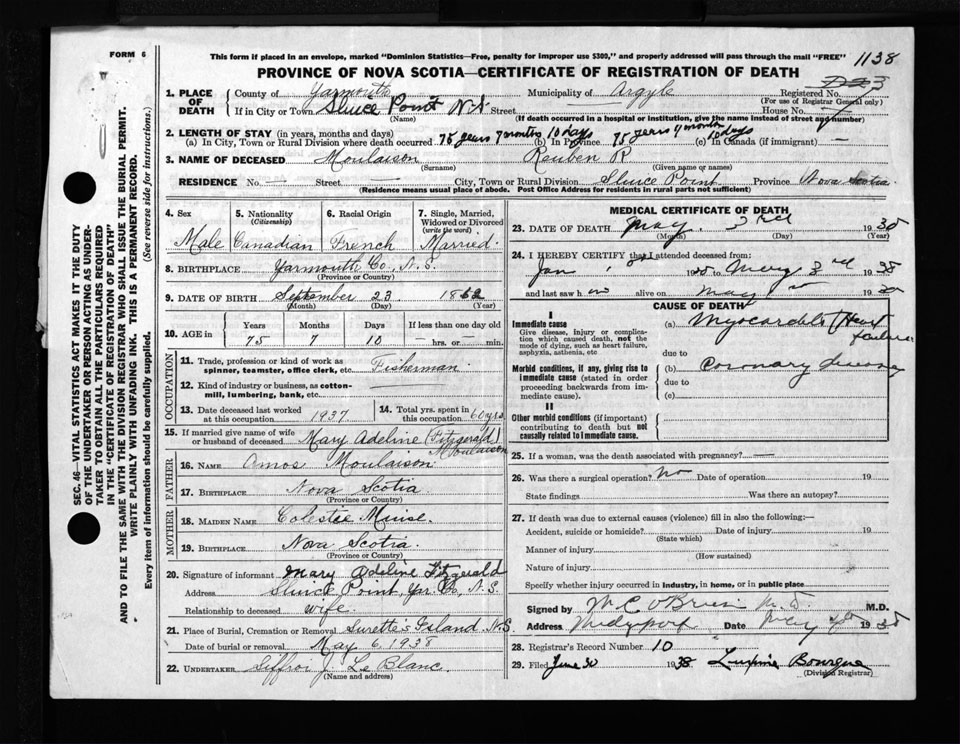 FORM 6
This form if placed in an envelope, marked "Dominion Statistics—Free, penalty for improper use $300," and properly addressed will pass through the mail "FREE"
1138
PROVINCE OF NOVA SCOTIA—CERTIFICATE OF REGISTRATION OF DEATH
1. PLACE OF DEATH
County of Yarmouth Municipality of Argyle Registered No.
(For use of Registrar General only)
If in City or Town Sluice Point N.S. Street House No.
(Name) (If death occurred in a hospital or institution, give the name instead of street and number)
2. LENGTH OF STAY (in years, months and days)
(a) In City, Town or Rural Division where death occurred 75 years 7 months 10 days (b) In Province 75 years 7 months 10 days (c) In Canada (if immigrant) —
3. NAME OF DECEASED Moulaison Reuben R
(Surname) (Given name or names)
RESIDENCE No. — Street — City, Town or Rural Division Sluice Point Province Nova Scotia
(Residence means usual place of abode. Post Office Address for residents in rural parts not sufficient)
4. Sex 5. Nationality (Citizenship) 6. Racial Origin 7. Single, Married, Widowed or Divorced (write the word)
Male Canadian French Married.
8. BIRTHPLACE Yarmouth Co., N.S.
(Province or Country)
9. DATE OF BIRTH September 23 1862
(Month) (Day) (Year)
10. AGE in Years Months Days If less than one day old
75 7 10 — hrs. or — min.
OCCUPATION
11. Trade, profession or kind of work as spinner, teamster, office clerk, etc. Fisherman.
12. Kind of industry or business, as cotton-mill, lumbering, bank, etc. —
13. Date deceased last worked at this occupation 1937 14. Total yrs. spent in this occupation 60 yrs.
15. If married give name of wife or husband of deceased Mary Adeline (Fitzgerald) Moulaison
FATHER
16. NAME Amos Moulaison
17. BIRTHPLACE Nova Scotia
(Province or Country)
MOTHER
18. MAIDEN NAME Colestee Muise.
19. BIRTHPLACE Nova Scotia.
(Province or Country)
20. Signature of informant Mary Adeline Fitzgerald
Address Sluice Point, Yar. Co, N.S.
Relationship to deceased wife.
21. Place of Burial, Cremation or Removal Surettes Island N.S
Date of burial or removal May 6 1938
22. UNDERTAKER J. Le Blanc.
(Name and address)
MEDICAL CERTIFICATE OF DEATH
23. DATE OF DEATH May. 3rd 1938
(Month) (Day) (Year)
24. I HEREBY CERTIFY that I attended deceased from:
Jan 1938 to May 3rd 1938
and last saw h im alive on May 1938
CAUSE OF DEATH
I
Immediate cause
Give disease, injury or complication which caused death, not the mode of dying, such as heart failure, asphyxia, asthenia, etc
(a) Myocarditis (Heart failure
due to
Morbid conditions, if any, giving rise to immediate cause (stated in order proceeding backwards from immediate cause).
(b) Coronary disease
due to
(c)
II
Other morbid conditions (if important) contributing to death but not causally related to immediate cause.
25. If a woman, was the death associated with pregnancy? —
26. Was there a surgical operation? No Date of operation 19
State findings Was there an autopsy?
27. If death was due to external causes (violence) fill in also the following:—
Accident, suicide or homicide? Date of injury 19
(State which)
Manner of injury
(How sustained)
Nature of injury
Specify whether injury occurred in industry, in home, or in public place
Signed by W C O'Brien M.D. M.D.
Address Date May 1938
28. Registrar's Record Number 10
29. Filed June 30 1938 Bourque
(Division Registrar)
SEC. 46—VITAL STATISTICS ACT MAKES IT THE DUTY
OF THE UNDERTAKER OR PERSON ACTING AS UNDER-
TAKER TO OBTAIN ALL THE PARTICULARS REQUIRED
IN THE "CERTIFICATE OF REGISTRATION OF DEATH"
AND TO FILE THE SAME WITH THE DIVISION REGISTRAR WHO SHALL ISSUE THE BURIAL PERMIT.
WRITE PLAINLY WITH UNFADING INK. THIS IS A PERMANENT RECORD.
Every item of information should be carefully supplied. (See reverse side for instructions.)